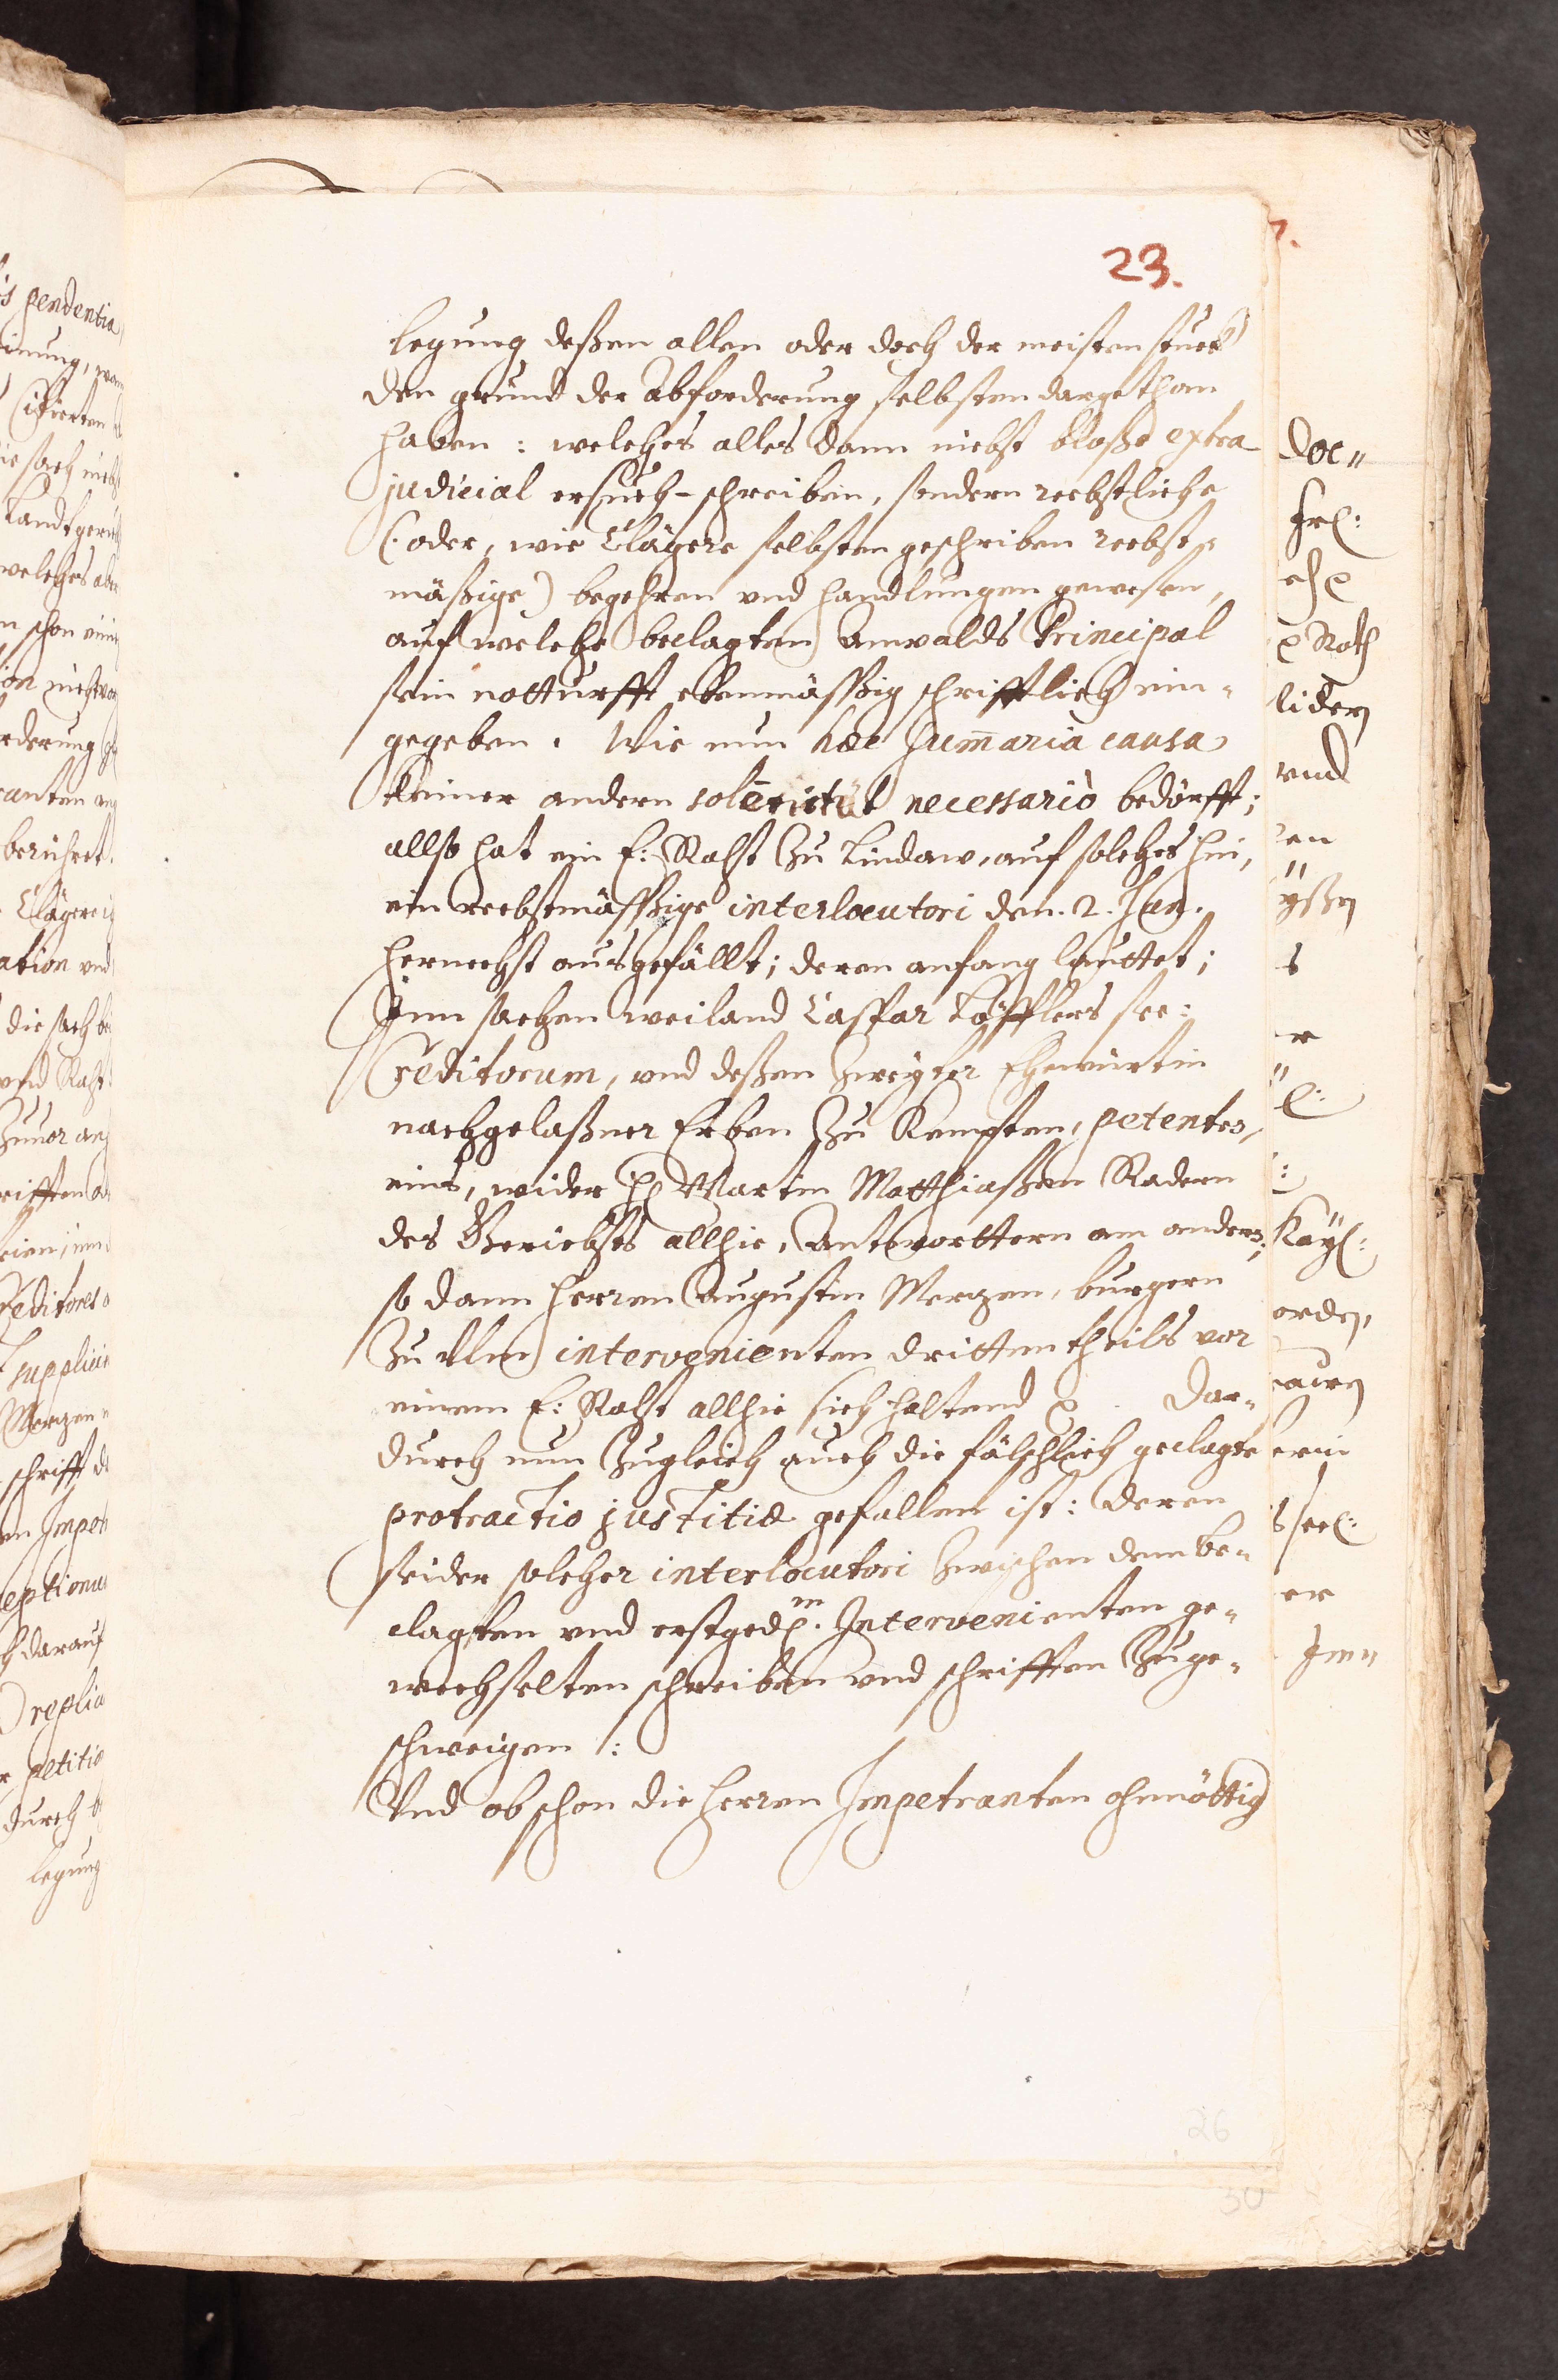 23.
legung deßen allen oder doch der meisten stuck
den grund der Abforderung selbsten dargethan
haben : welches alles dann nicht bloße extra
judicial ersuch-schreiben, sondern rechtliche
(: oder, wie Clägere selbsten geschriben recht-
mäßige) begehren vnd handlungen gewesen,
auf welche beclagten Anwalds Principal
sein notturfft ebenmässig schrifftlich ein-
gegeben. Wie nun hæc sum̄aria causa
keiner andern necessariò bedörfft;
allso hat ein E: Raht Zu Lindaw, auf solches hin,
ein rechtmässige interlocutori den. 2. Jan.
hernechst ausgefällt; deren anfang lauttet;
Inn sachen weiland Caspar Löfflers see:
Creditorum, vnd deßen Zweyter Ehewürtin
nachgelaßner Erben Zu Kempten, petentes,
eins, wider H Martin Matthiaßen Radern
des Gerichts allhie, Antworttern am andern;
so dann Herren Augustin Merzen, burgern
Zu Ulm intervenienten dritten theils vor
einem E: Raht allhie sich haltend Dar-
durch nun Zugleich auch die fälschlich geclagte
protractio justitiæ gefallen ist: deren
seider solcher interlocutori Zwischen dem be-
clagten vnd erstged. Intervenienten ge-
wechselten schreiben vnd schrifften Zuge-
schweigen :
Vnd obschon die Herren Impetranten ohnnöttig
26
30